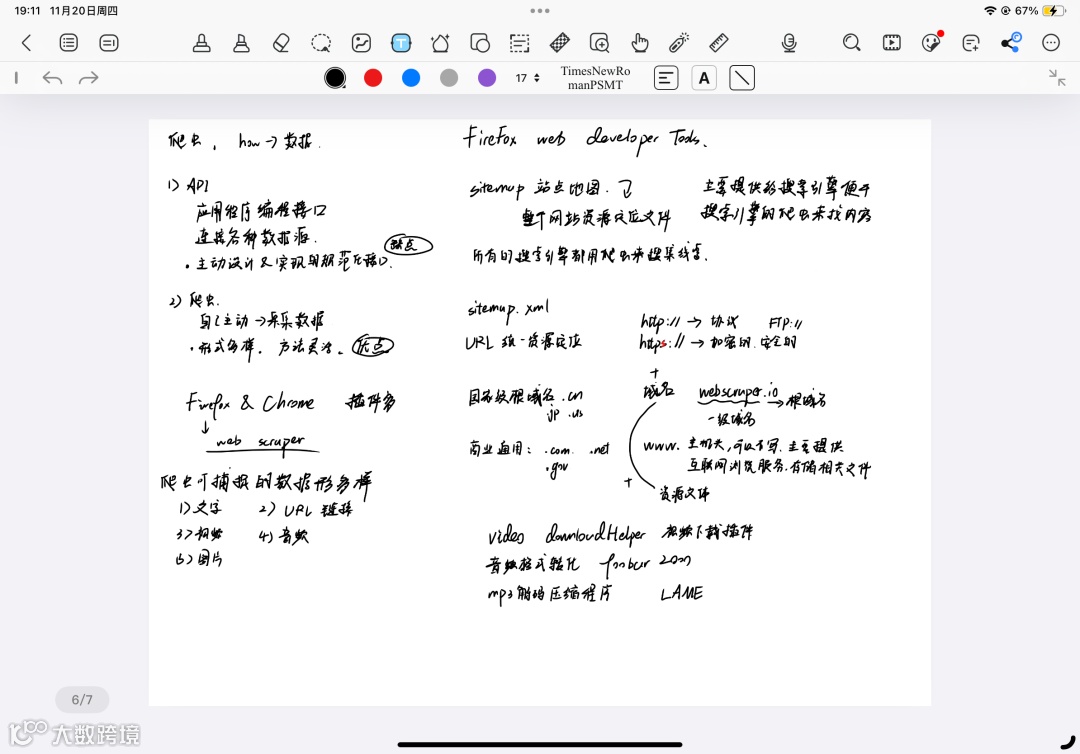 19:11 11月20日周四
67%
17
TimesNewRo
manPSMT
A
爬虫, how → 数据.
1) API
应用程序编程接口
连接各种数据源.
缺点
· 主动设计及实现的规范化接口.
2) 爬虫.
自己主动 → 采集数据
· 形式多样, 方法灵活. 优点
Firefox & Chrome 插件多
↓
web scraper
爬虫可捕捉的数据形多样
1) 文字 2) URL 链接
3) 视频 4) 音频
5) 图片
FireFox web developer Tools.
sitemap 站点地图.
整个网站资源定位文件
主要提供给搜索引擎便于
搜索引擎的爬虫来找内容
所有的搜索引擎都用爬虫来搜集信息.
sitemap.xml
URL 统一资源定位
http:// → 协议 FTP://
https:// → 加密的.安全的
+
国家级根域名 .cn
.jp .us
域名 webscraper.io → 根域名
一级域名
商业通用: .com. .net
.gov
www. 主机头,可以不写. 主要提供
互联网浏览服务.存储相关文件
+
资源文件
video downloadHelper 视频下载插件
音频格式转化 foobar 2000
mp3解码压缩程序 LAME
6/7
大数跨境